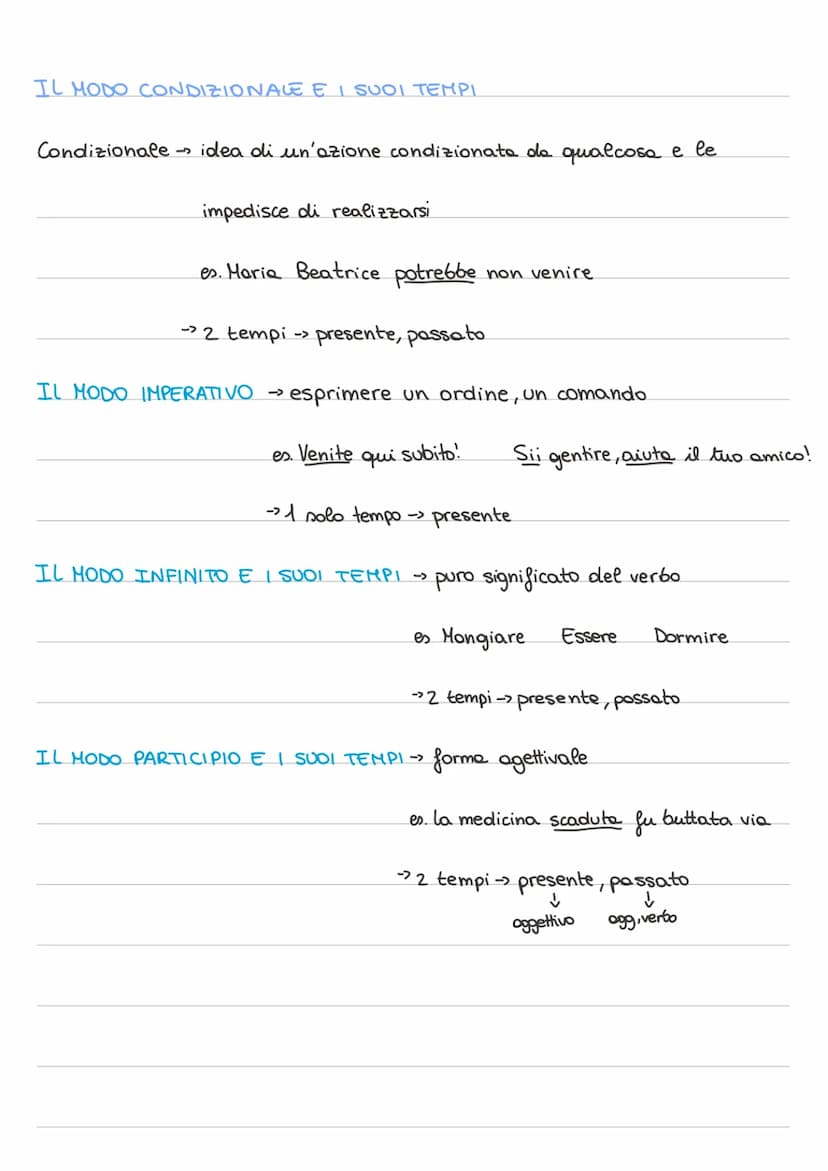 IL MODO CONDIZIONALE E I SUOI TEMPI
Condizionale → idea di un'azione condizionata da qualcosa e le
impedisce di realizzarsi
es. Maria Beatrice potrebbe non venire
→ 2 tempi → presente, passato
IL MODO IMPERATIVO → esprimere un ordine, un comando
es. Venite qui subito! Sii gentire, aiuta il tuo amico!
→ 1 solo tempo → presente
IL MODO INFINITO E I SUOI TEMPI → puro significato del verbo
es Mangiare Essere Dormire
→ 2 tempi → presente, passato
IL MODO PARTICIPIO E I SUOI TEMPI → forma agettivale
es. la medicina scaduta fu buttata via
→ 2 tempi → presente, passato
↓ ↓
aggettivo agg, verbo